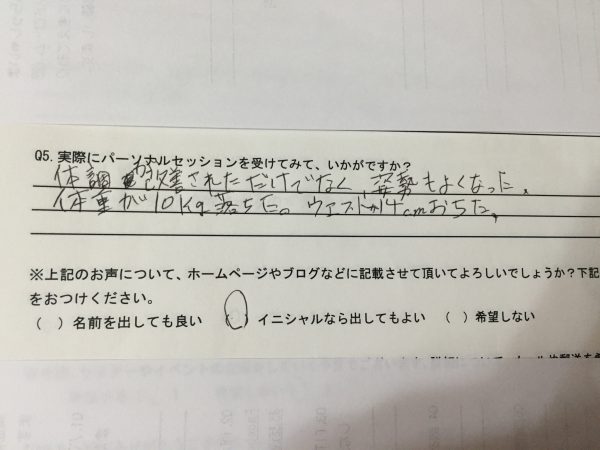 Q5. 実際にパーソナルセッションを受けてみて、いかがですか？
体調が改善されただけでなく、姿勢もよくなった。
体重が10Kg落ちた。ウエストが4cmおちた。
※上記のお声について、ホームページやブログなどに記載させて頂いてよろしいでしょうか？下記
をおつけください。
（ ）名前を出しても良い （ ）イニシャルなら出してもよい （ ）希望しない